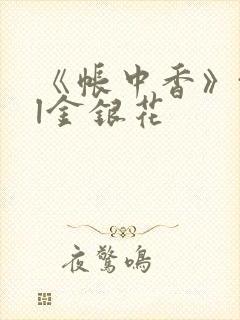 《帐中香》
|金银花
夜惊鸣